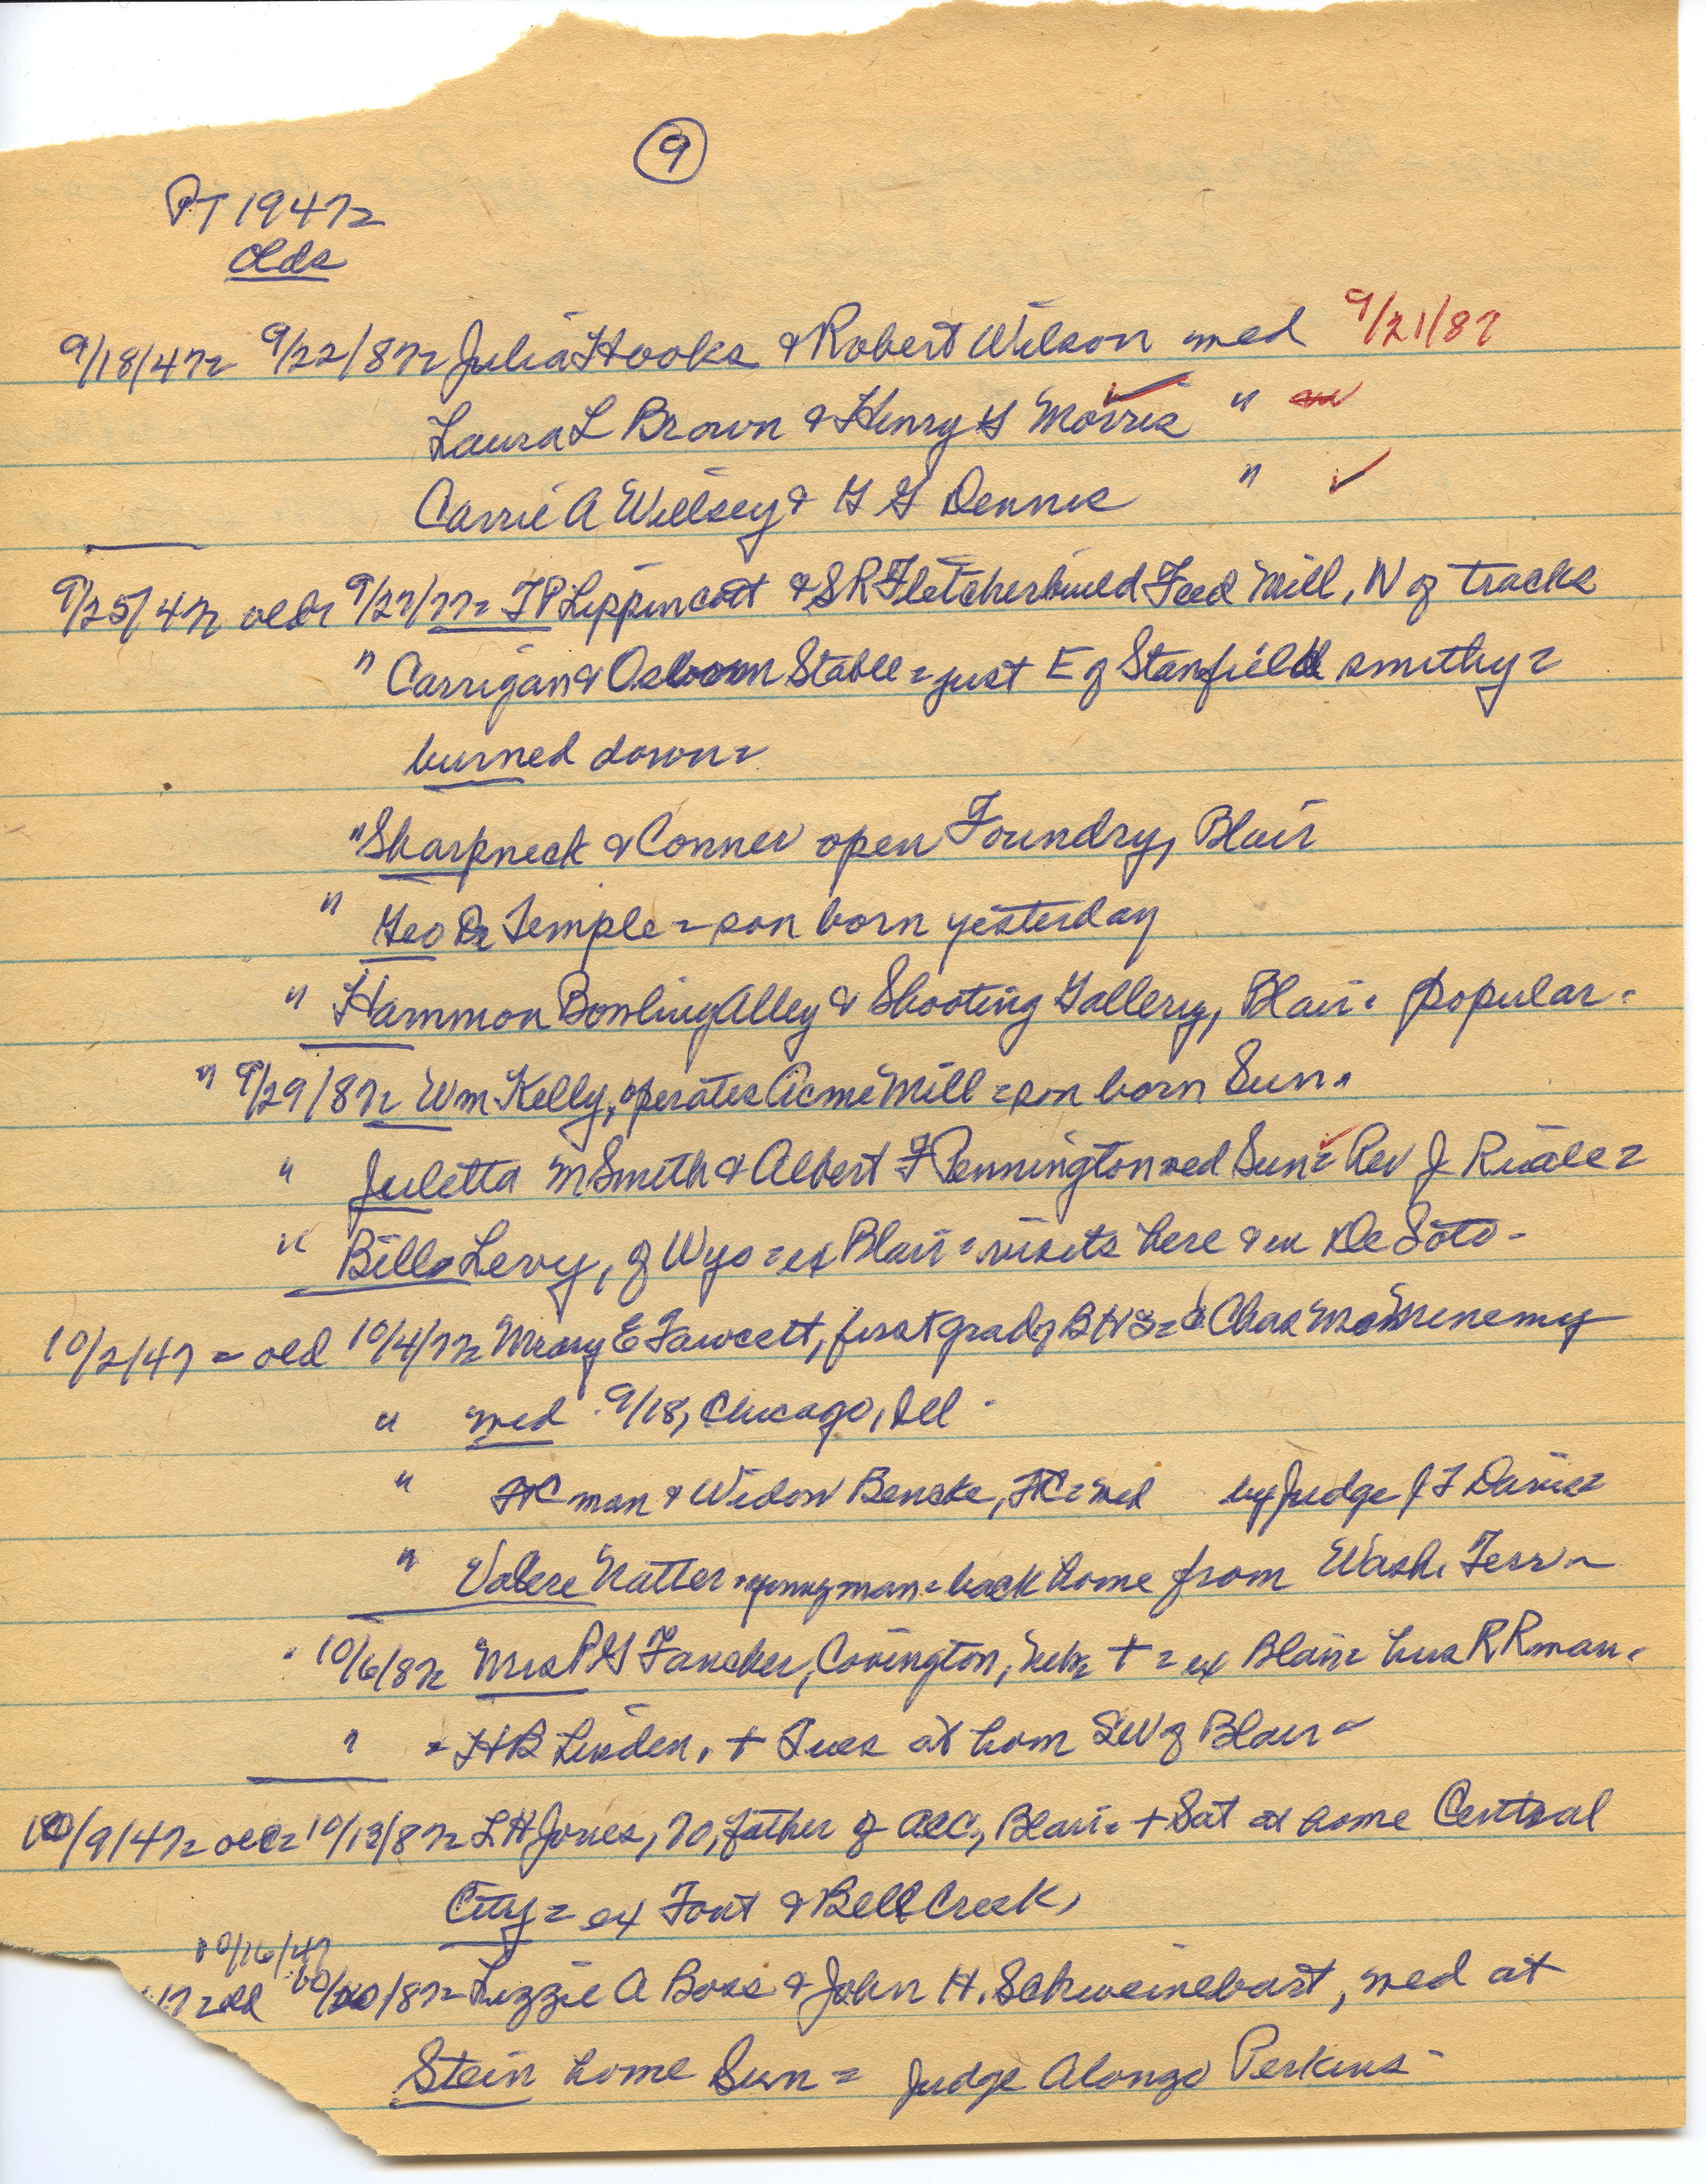 9
PT 1947=
Olds
9/18/47= 9/22/87= Julia Hooks & Robert Wilson wed 9/21/87
Laura L Brown & Henry G Morris "
Carrie A Willsey & G G Dennis "
9/25/47= old= 9/27/77= TP Lippincott & SR Fletcher build Feed Mill, N of tracks
" Carrigan & Osborn Stable = just E of Stanfield smithy =
burned down =
" Sharpneck & Conner open Foundry, Blair
" Geo Temple = son born yesterday
" Hammon Bowling Alley & Shooting Gallery, Blair = popular =
" 9/29/87= Wm Kelly, operates Acme Mill = son born Sun =
" Juletta M Smith & Albert F Pennington wed Sun = Rev J Riale =
" Bill Levy, of Wyo = ex Blair = visits here & in De Soto -
10/2/47 = old 10/4/77= Mary E Fawcett, first grad of BHS = & Chas McMenemy
" wed 9/18, Chicago, Ill -
" FC man & Widow Bencke, FC = wed by Judge J F Davis =
" Valere Natter = young man = back home from Wash. Terr =
" 10/6/87= Mrs P G Fancher, Covington, Neb = + = ex Blair = hus RR man =
" = HB Linden, + Tues at hom SW of Blair =
10/9/47= old= 10/13/87= L H Jones, 70, father of AC, Blair = + Sat at home Central
City = ex Font & Bell Creek,
10/16/47
47 = old 10/20/87= Lizzie A Boss & John H. Schweinebart, wed at
Stein home Sun = Judge Alonzo Perkins -